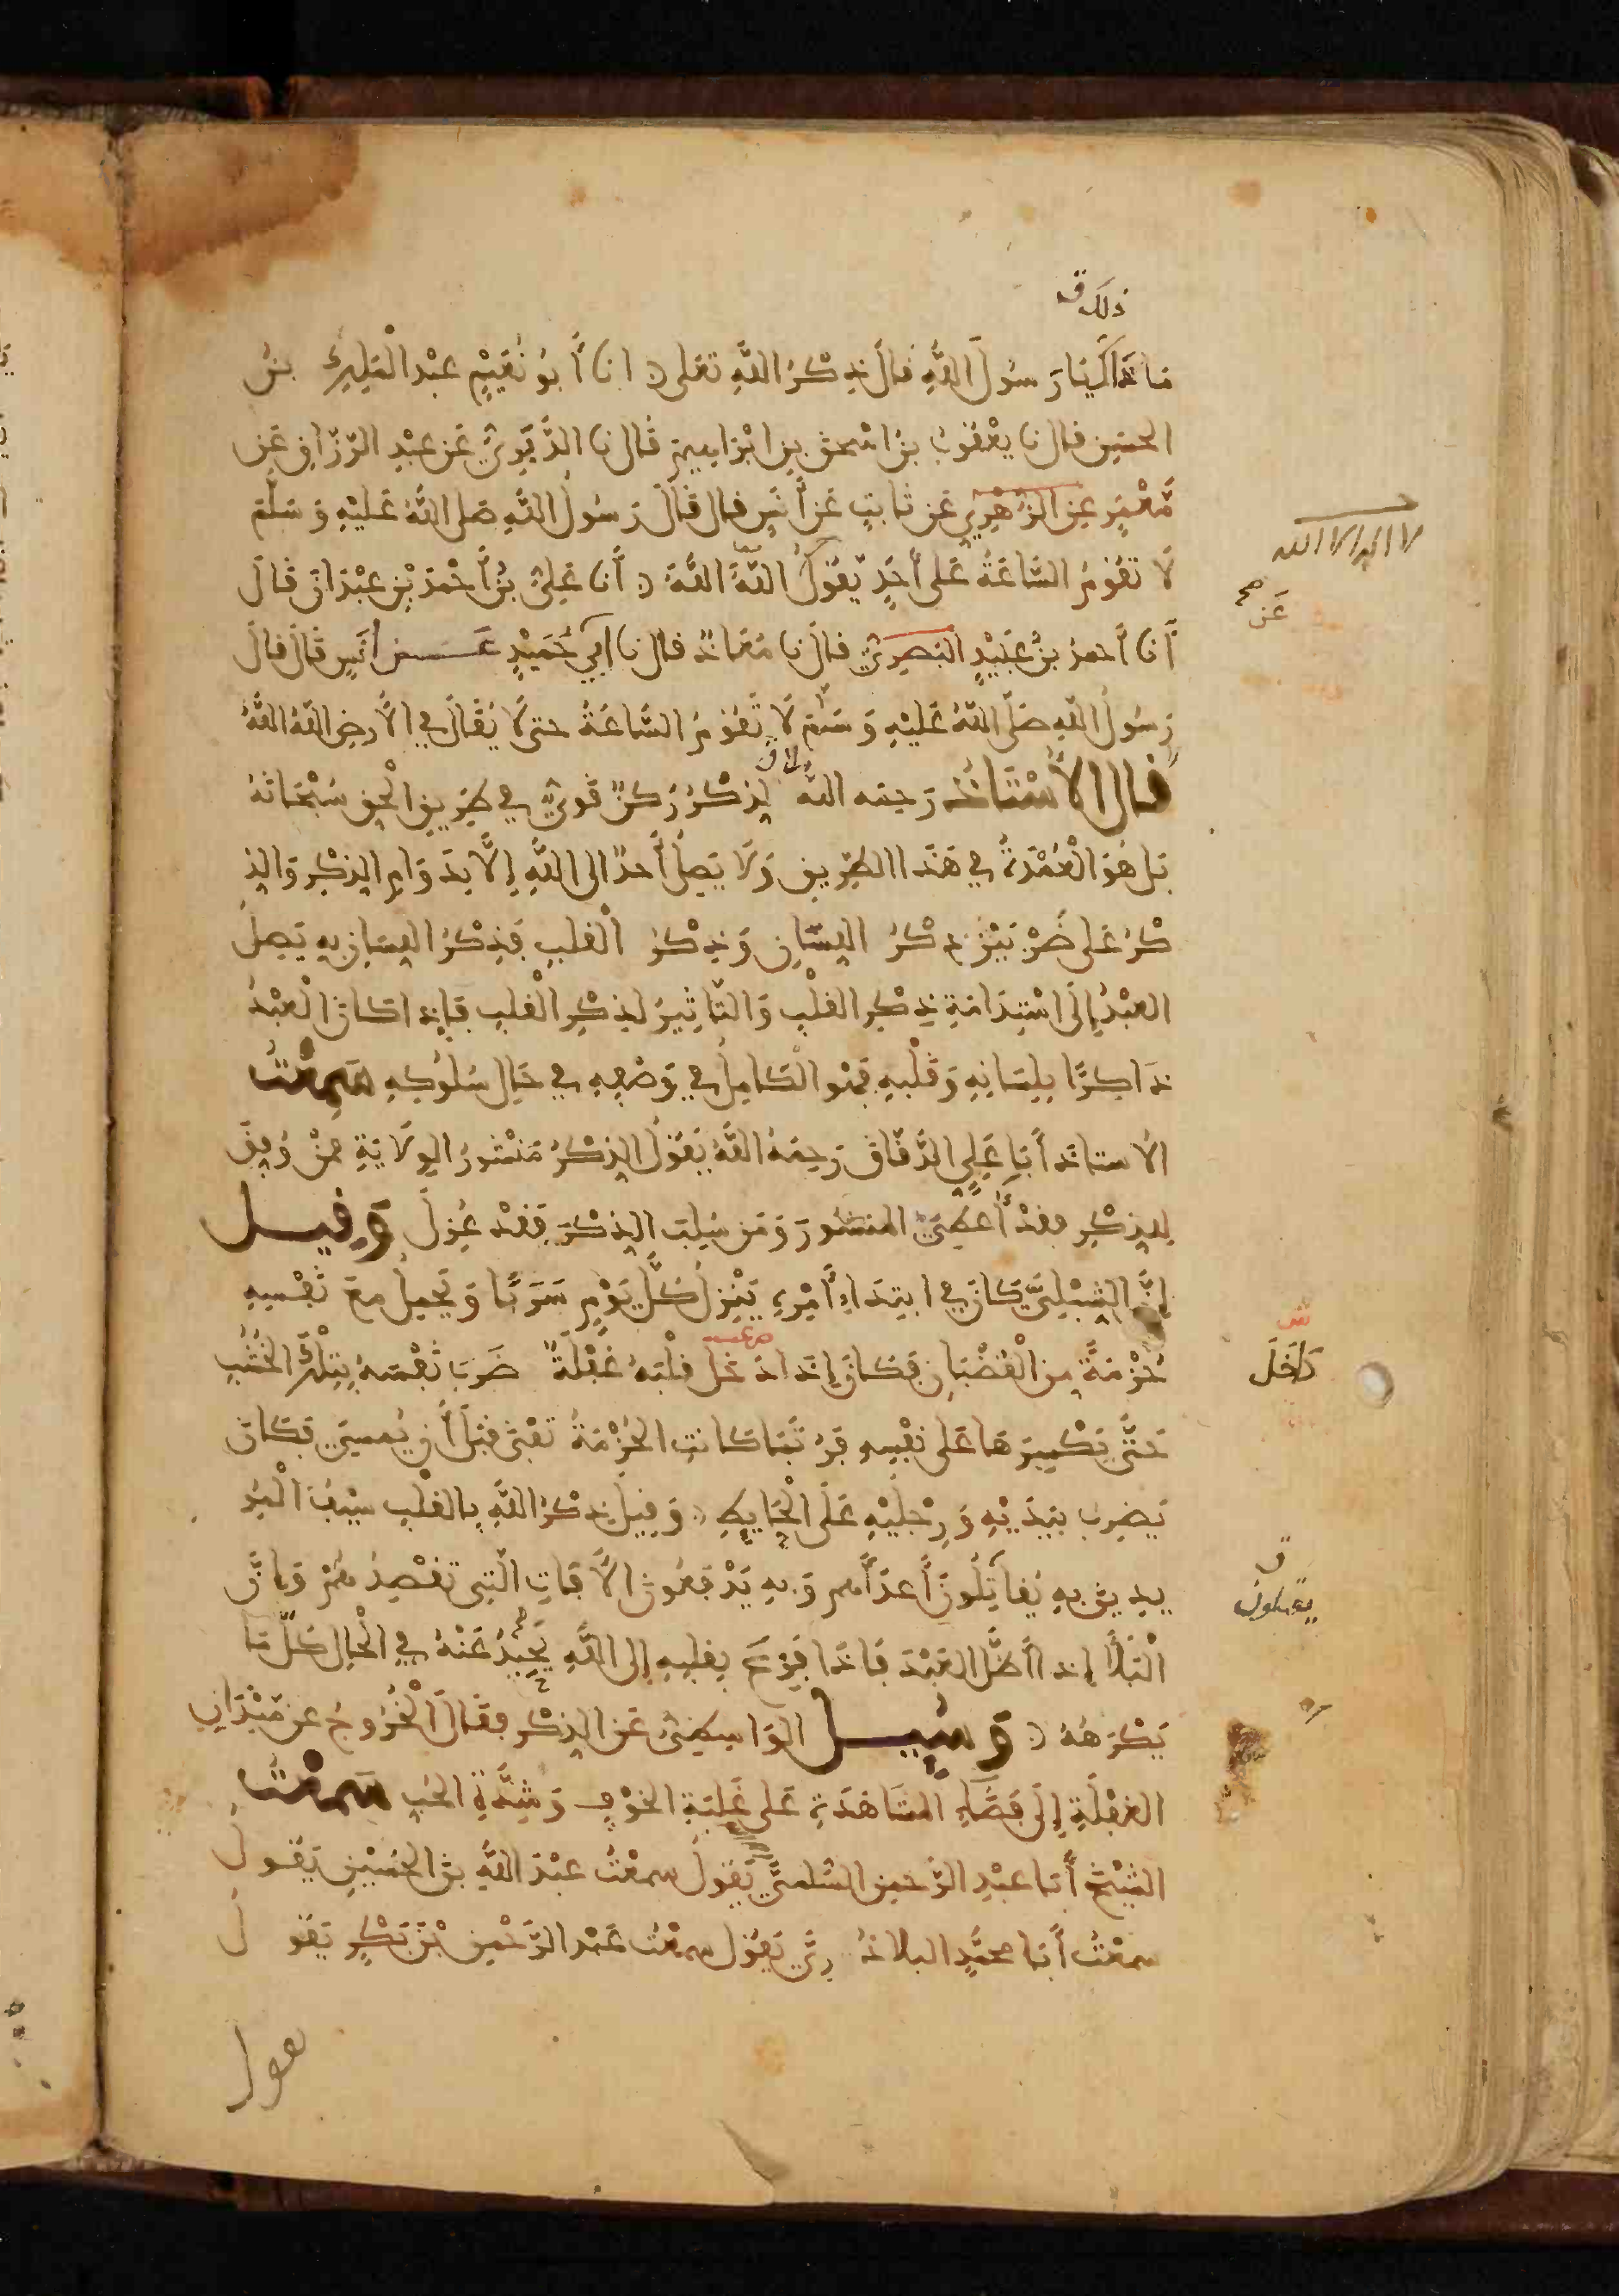 ذلك ق
ما ذاك يا رسول الله قال ذكر الله تعلى انا أبو نعيم عبد الملك بن
الحسين قال نا يعقوب بن اسحق بن ابراهيم قال نا الدبري عن عبد الرزاق عن
معمر عن الزهري عن ثابت عن أنس قال قال رسول الله صلى الله عليه وسلم
لا اله الا الله
لا تقوم الساعة على أحد يقول الله الله أنا علي بن أحمد بن عبدان قال
عن صح
أنا أحمد بن عبيد البصري قال نا معاذ قال نا أبي حميد عن أنس قال قال
رسول الله صلى الله عليه وسلم لا تقوم الساعة حتى لا يقال في الأرض الله الله
قال الأستاذ رحمه الله لذكر ركن قوي في طريق الحق سبحانه
بل هو العمدة في هذا الطريق ولا يصل أحد الى الله إلا بدوام الذكر والذ
كر على ضربين ذكر اللسان وذكر القلب فذكر اللسان به يصل
العبد إلى استدامة ذكر القلب والتاثير لذكر القلب فإذا كان العبد
ذاكرا بلسانه وقلبه فهو الكامل في وصفه في حال سلوكه سمعت
الاستاذ أبا علي الدقاق رحمه الله يقول الذكر منشور الولاية فمن وفق
للذكر فقد أعطي المنشور ومن سلب الذكر فقد عزل وقيل
إن الشبلي كان في ابتداء أمره ينزل كل يوم سربا ويحمل مع نفسه
حزمة من القضبان فكان إذا دخل قلبه غفلة ضرب نفسه بتلك الخشب
داخل
حتى يكسرها على نفسه فربما كانت الحزمة تفنى قبل أن يمسي فكان
يضرب بيديه ورجليه على الحايط وقيل ذكر الله بالقلب سيف المر
يدين به يقاتلون أعداءهم وبه يدفعون الآفات التي تقصدهم وان
ق
يقتلون
البلا إذا أظل العبد فاذا فزع بقلبه إلى الله يحيد عنه في الحال كل ما
يكرهه وسيل الواسطي عن الذكر فقال الخروج عن ميدان
الغفلة إلى فضاء المشاهدة على غلبة الخوف وشدة الحب سمعت
الشيخ أبا عبد الرحمن السلمي يقول سمعت عبد الله بن الحسين يقول
سمعت أبا محمد البلاذري يقول سمعت عبد الرحمن بن بكر يقول